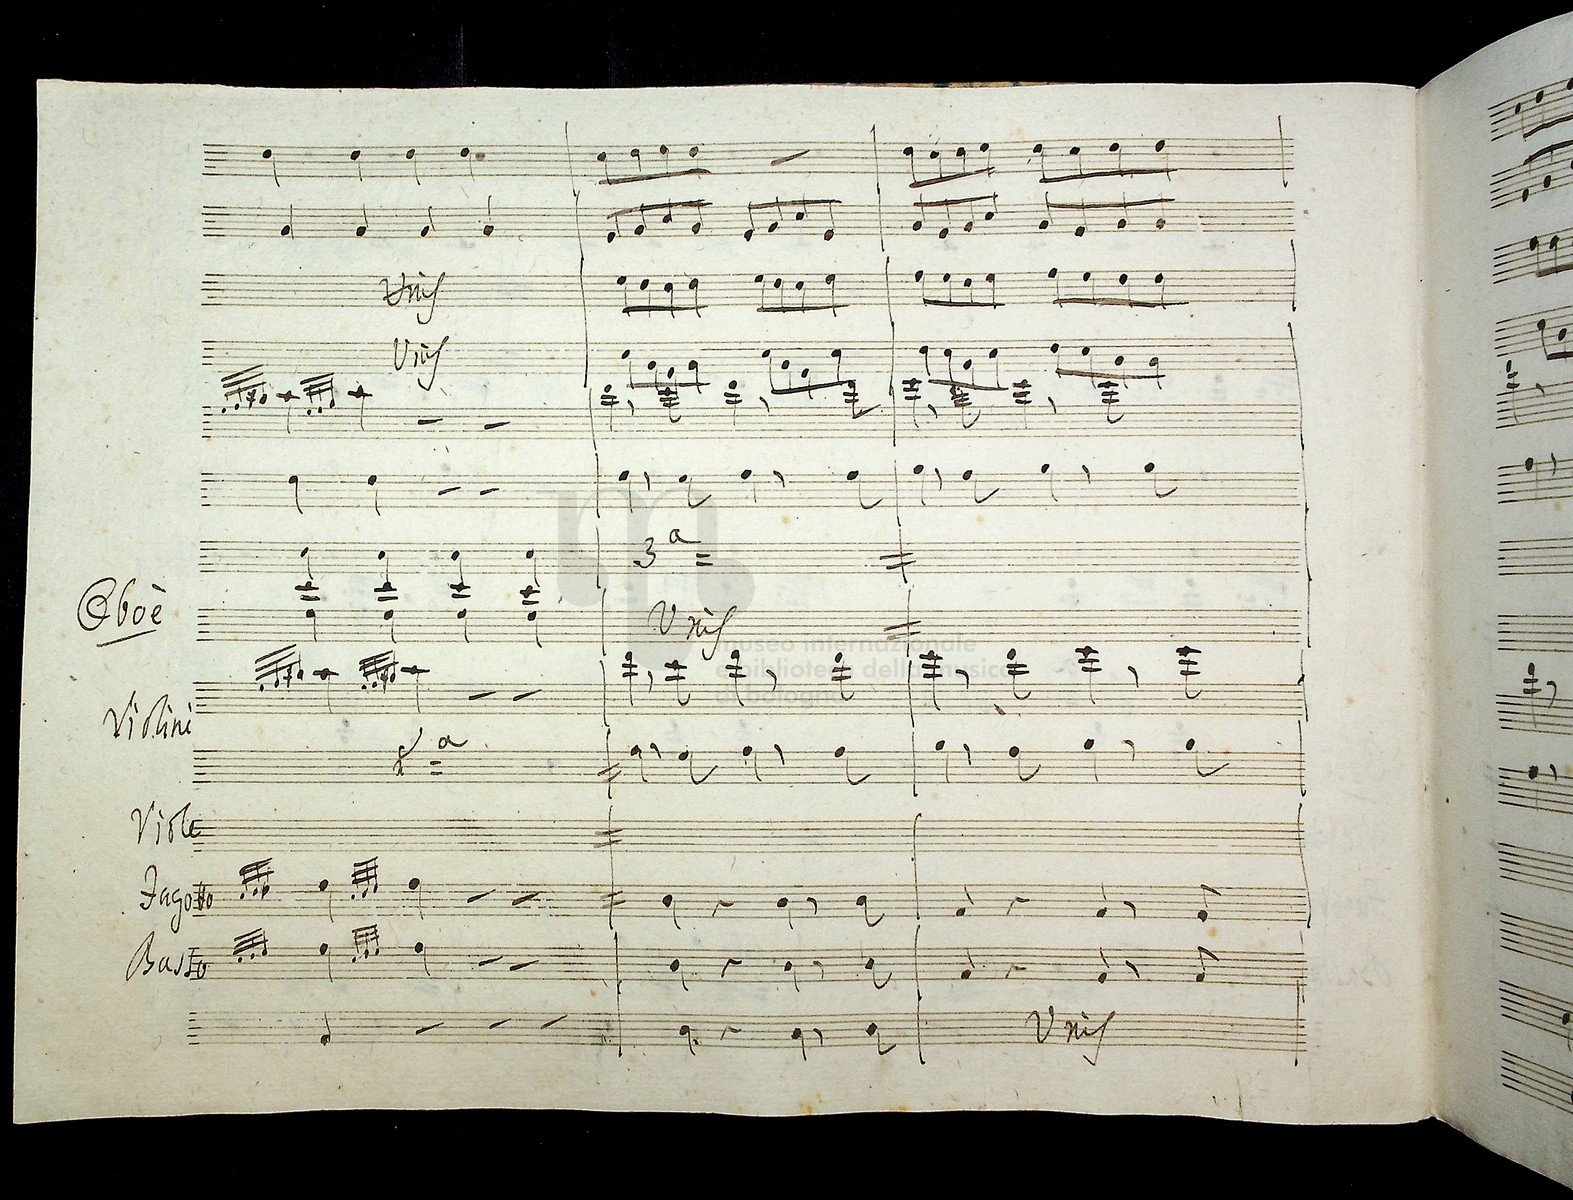 Unis
Unis
3ª
Oboè
Unis
Violini
Viole
Fagotto
Basso
Unis
museo internazionale
e biblioteca della musica
di bologna